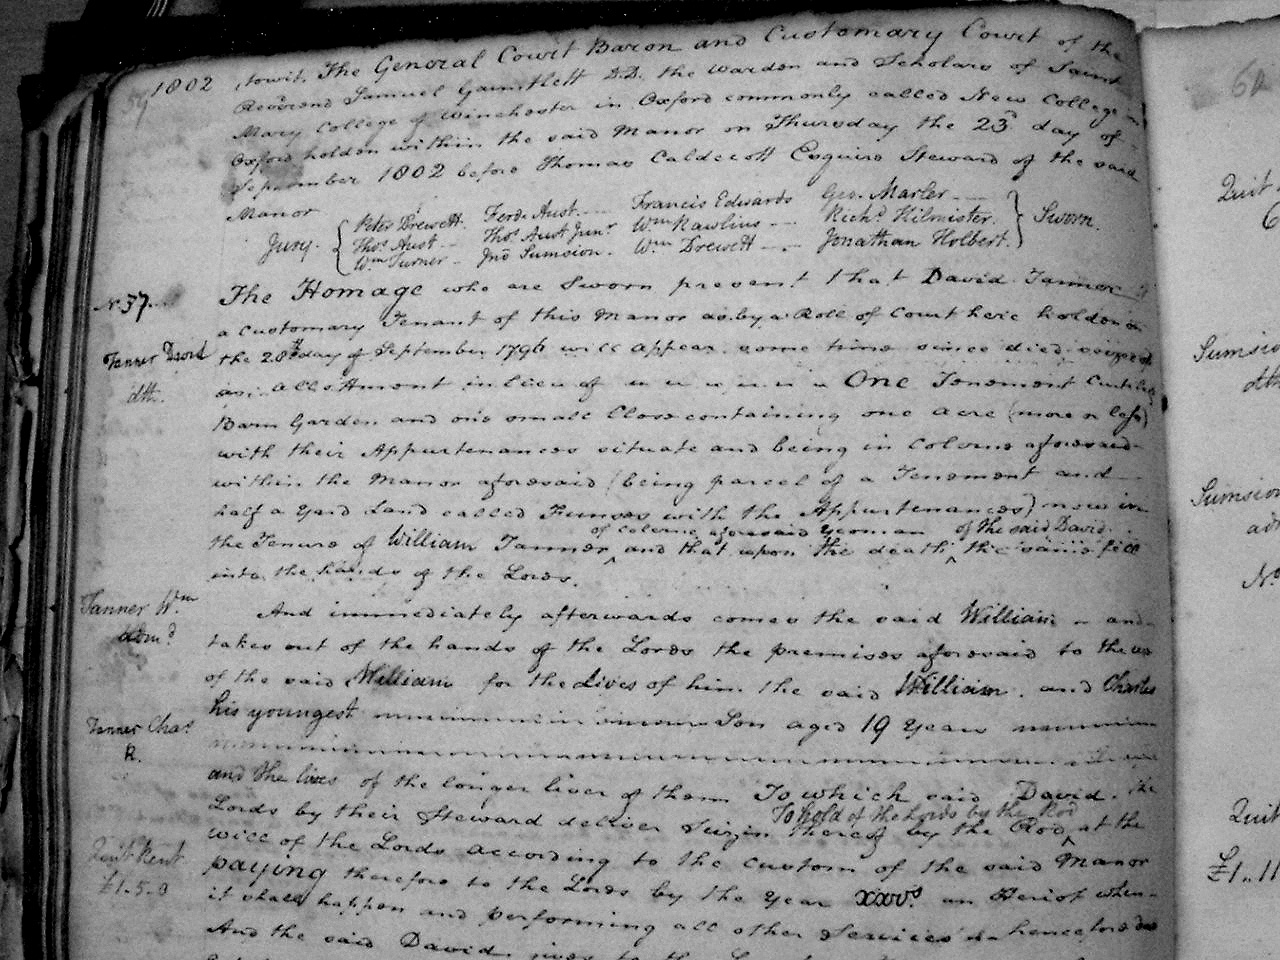 1802 , towit, The General Court Baron and Customary Court of the
59
Reverend Samuel Gauntlett D.D. the Warden and Scholars of Saint
Mary College of Winchester in Oxford commonly called New College in
Oxford holden within the said Manor on Thursday the 23d day of
September 1802 before Thomas Caldecott Esquire Steward of the said
Manor
Jury. Peter Drewett. Ferd. Aust Francis Edwards Geo. Marler
Thos. Aust Thos. Aust Junr Wm Rawlins Richd. Kilmister. Sworn.
Wm Turner Jno Sumsion. Wm Drewett Jonathan Holbert.
No. 37.
The Homage who are Sworn present that David Tanner
a Customary Tenant of this Manor as by a Roll of Court here holden on
Tanner David
the 20th day of September 1796 will appear some time since died seized of
dth.
an Allottment in lieu of One Tenement Curtilage
Barn Garden and one small Close containing one acre (more or less)
with their Appurtenances situate and being in Colerne aforesaid
within the Manor aforesaid (being parcel of a Tenement and
half a Yard Land called with the Appurtenances) now in
of Colerne aforesaid Yeoman of the said David
the Tenure of William Tanner and that upon the death the same fell
into the hands of the Lords.
Tanner Wm
And immediately afterwards comes the said William and
admd
takes out of the hands of the Lords the premises aforesaid to the use
of the said William for the Lives of him the said William and Charles
his youngest Son aged 19 Years
Tanner Chas
R.
and the lives of the longer liver of them To which said David the
To hold of the Lords by the Rod
Lords by their Steward deliver Seizin thereof by the Rod at the
will of the Lords according to the custom of the said Manor
Quit Rent
paying therefore to the Lords by the Year xxvs. an Heriot when
£1.5.0
it shall happen and performing all other Services henceforth due
And the said David gives to the
60
Quit
Sumsion
dth
Sumsion
ad
No
Quit
£1..11